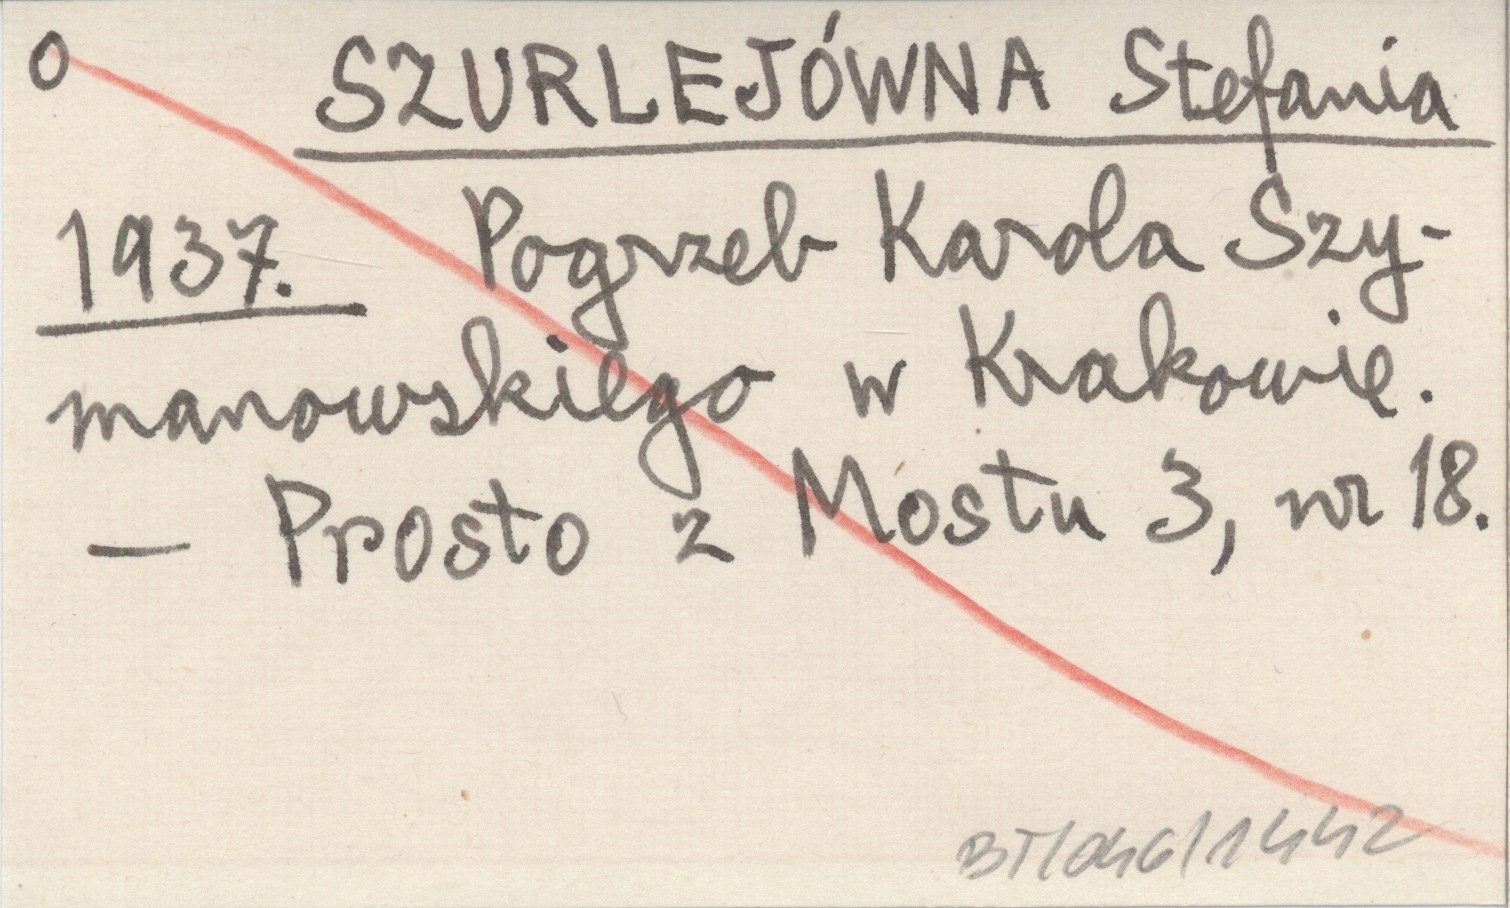 O SZURLEJÓWNA Stefania
1937. Pogrzeb Karola Szy-
manowskiego w Krakowie.
— Prosto z Mostu 3, nr 18.
BT/046/1442